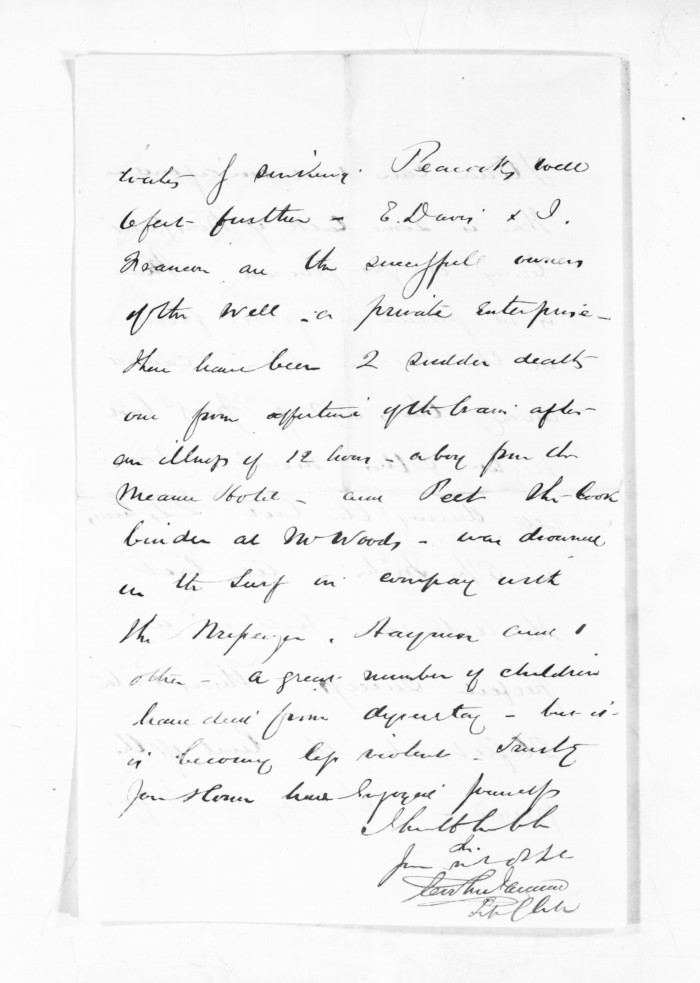 water by sinking Peacock's well
6 feet further - E. Davis & J.
are the successful owners
of the well - a private Enterprise -
There have been 2 sudden deaths
one from of the brain after
an illness of 12 hours - a boy from the
Meanee Hotel - and Peet the book
binder at Mr Woods - was drowned
in the Surf in company with
the Messenger, Haymer and 1
other - a great number of children
have died from dysentery - but it
is becoming less violent - Trusting
Your Honor have Enjoyed yourself